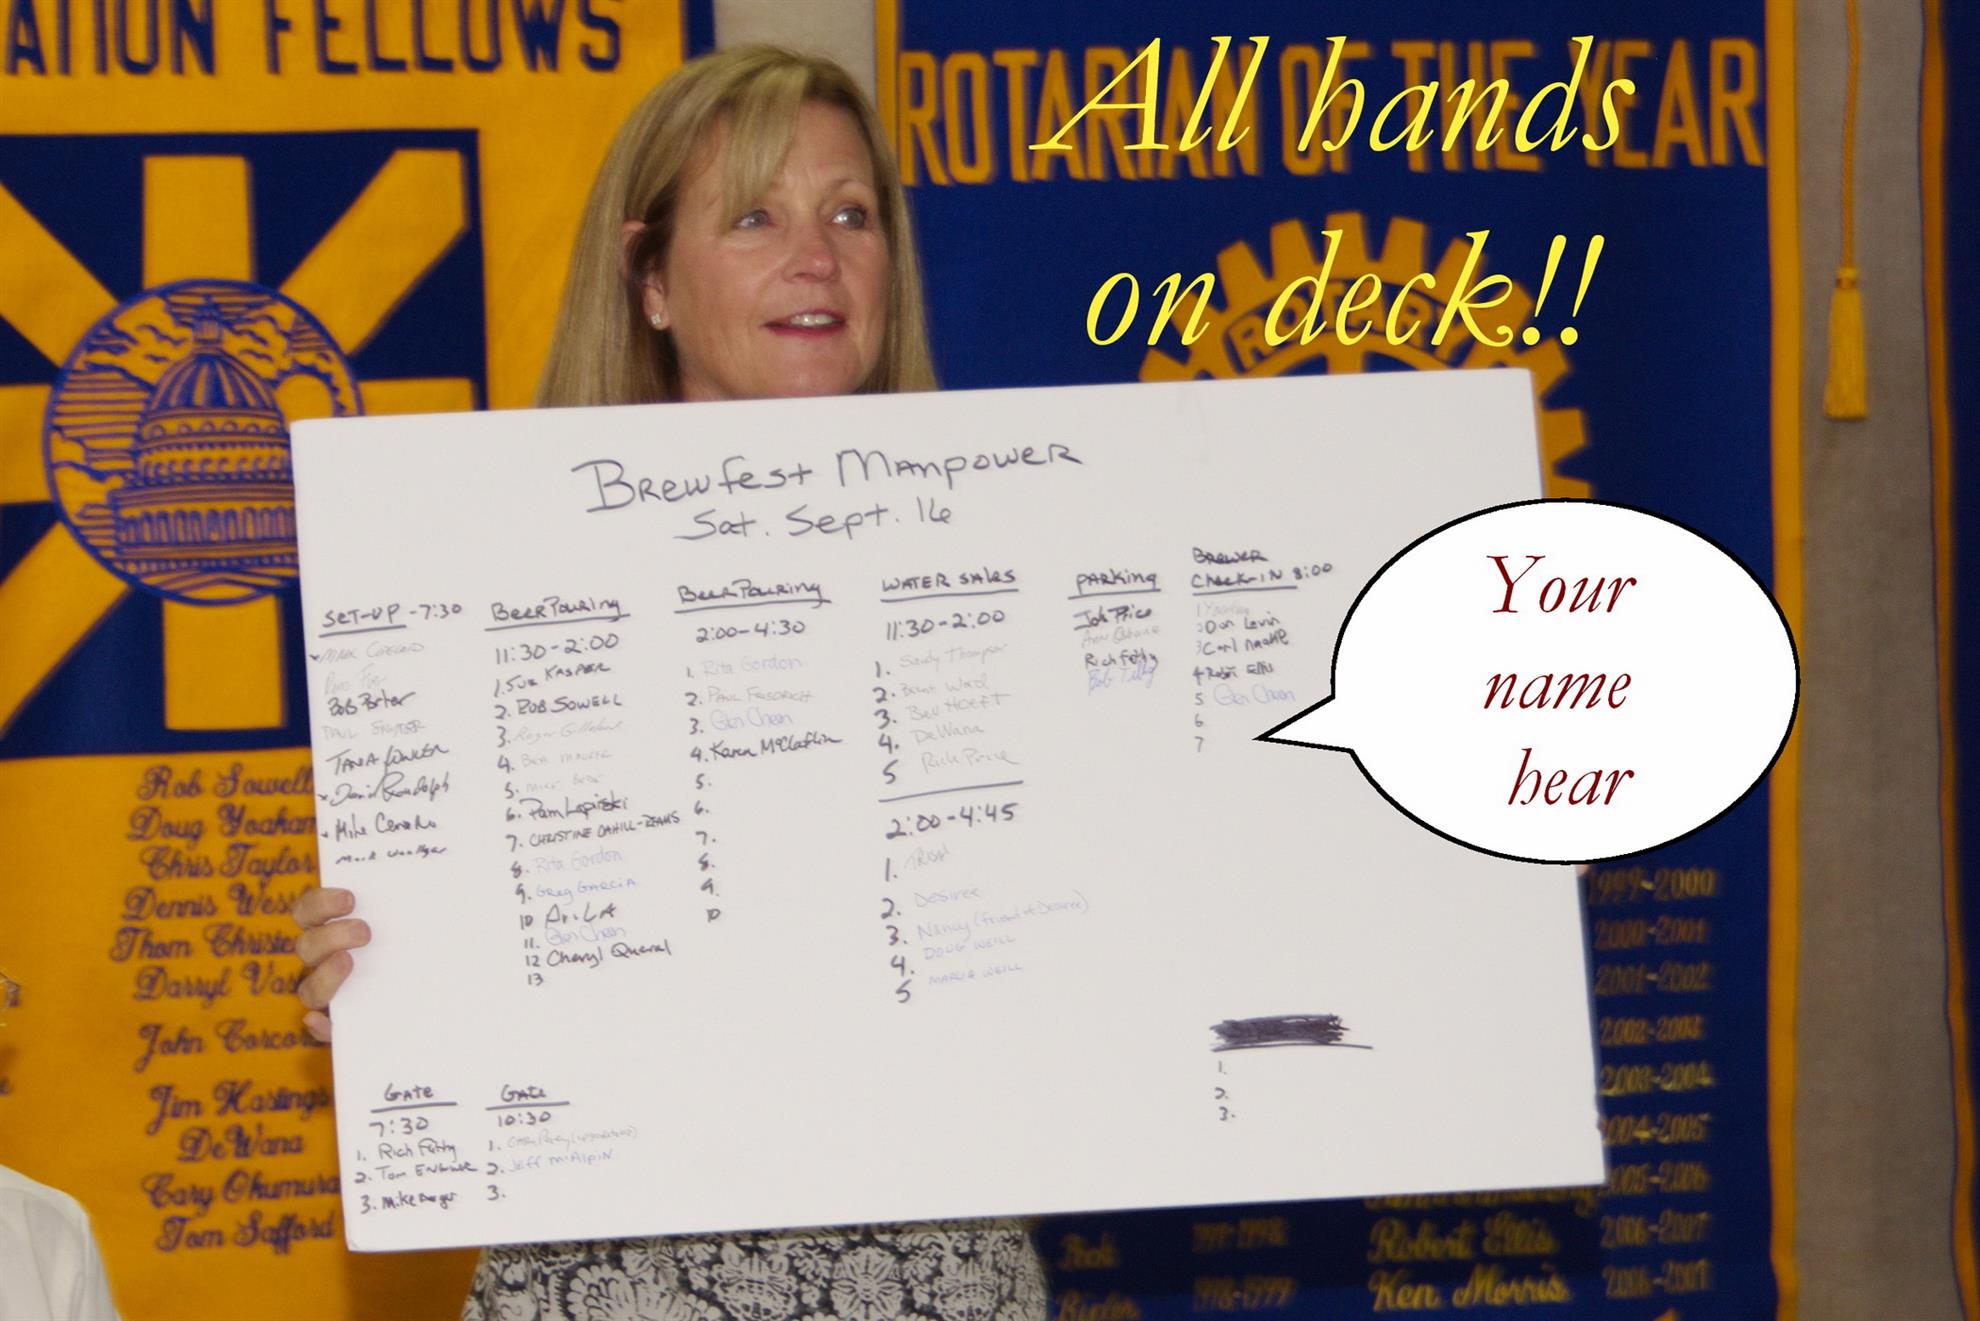 ATION FELLOWS
ROTARIAN OF THE YEAR
All hands
on deck!!
ROTARY
Brewfest Manpower
Sat. Sept. 16
SET-UP - 7:30
Bob Porter
Tania Fowler
David Rudolph
Mike
Mark
Beer Pouring
11:30-2:00
1. Sue Kasper
2. Rob Sowell
3. Roger
4. Ben
5. Mike
6. Pam Lopinski
7. Christine Cahill-Reams
8. Rita Gordon
9. Greg Garcia
10
11. Glen Chean
12 Cheryl Queral
13
Beer Pouring
2:00-4:30
1. Rita Gordon
2. Paul Friedrich
3. Glen Chean
4. Karen McClaflin
5.
6.
7.
8.
9.
10
WATER SALES
11:30-2:00
1. Sandy Thompson
2. Brent Ward
3. Bev Hoeft
4. DeWana
5 Rick Price
2:00-4:45
1. Trish
2. Desiree
3. Nancy (friend of Desiree)
4. Doug Weill
5 Marcia Weill
Parking
Job Price
Ann
Rich Fetty
Bob Tilly
Brewer
Check-IN 8:00
1
2 Don Levin
3 Carl
4 Robin Ellis
5 Glen Chean
6
7
Your
name
hear
1.
2.
3.
Gate
7:30
1. Rich Fetty
2. Tom
3. Mike
Gate
10:30
1. Gary
2. Jeff McAlpin
3.
Rob Sowell
Doug Yoakam
Chris Taylor
Dennis
Thom
Darryl
John
Jim Hastings
DeWana
Cary Okumura
Tom Safford
1999-2000
2000-2001
2001-2002
2002-2003
2003-2004
2004-2005
2005-2006
1997-1998
Robert Ellis 2006-2007
1998-1999
Ken Morris 2006-2007